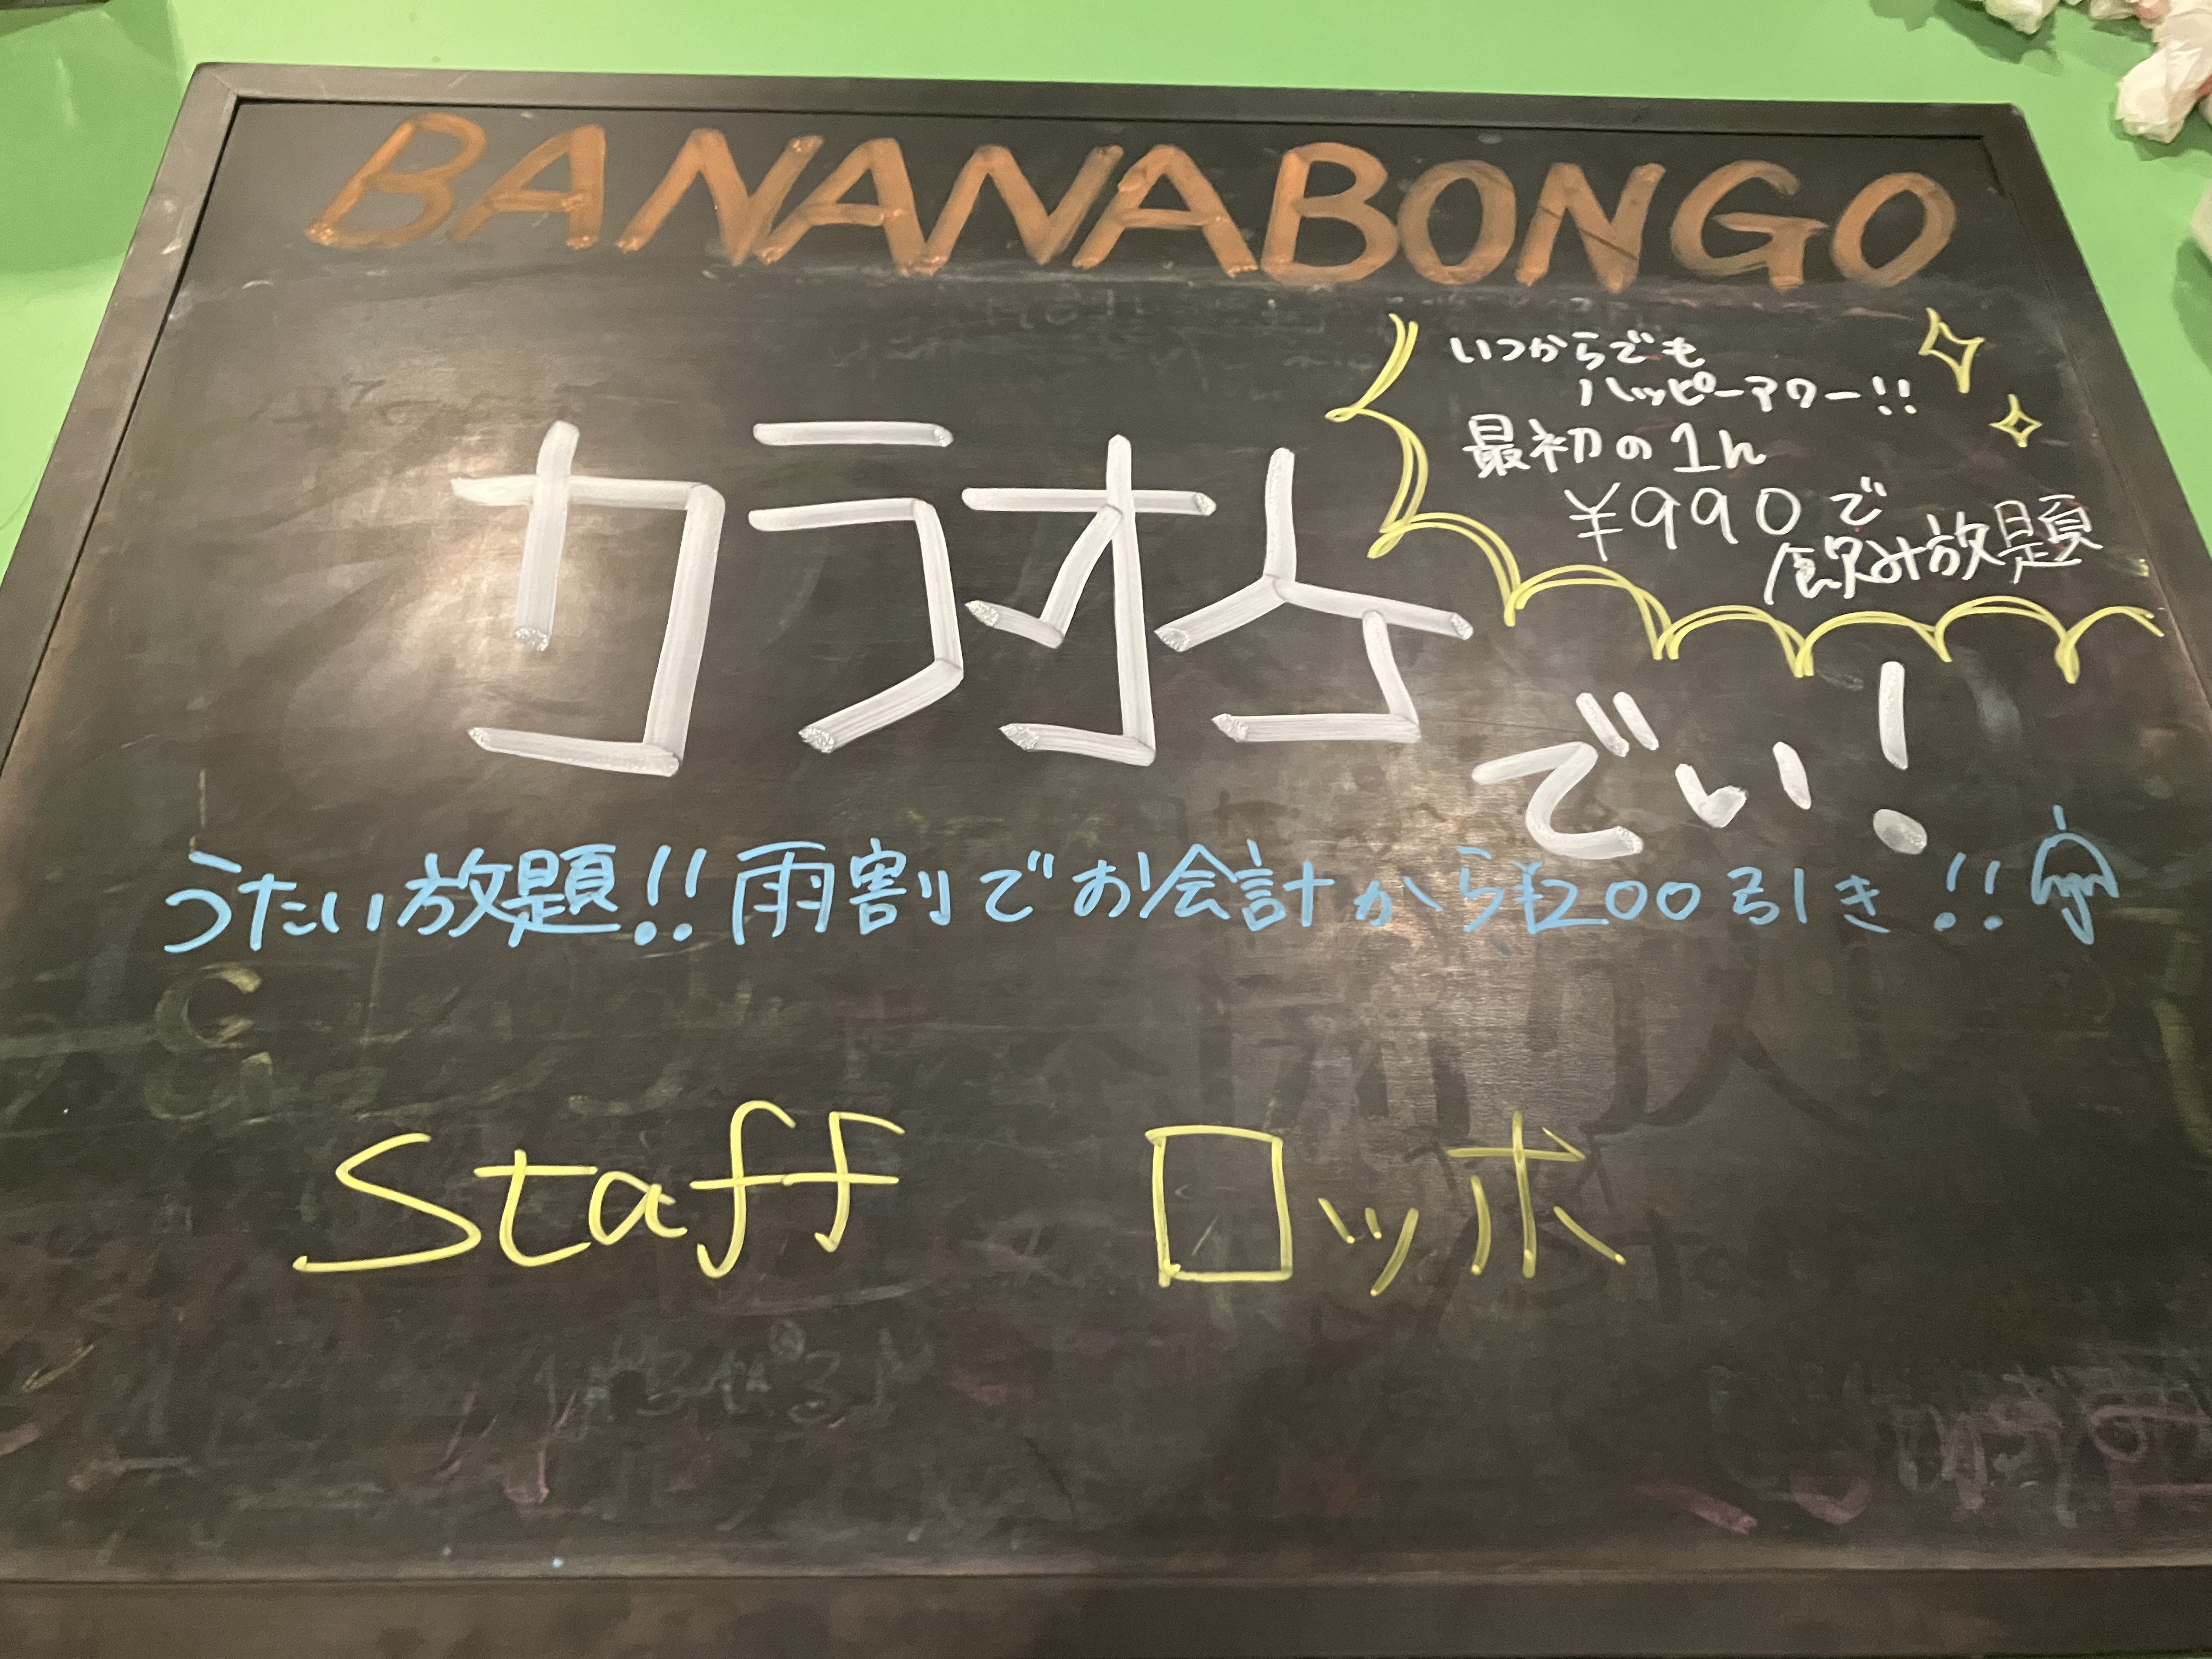 BANANABONGO
いつからでも
ハッピーアワー!!
最初の1h
¥990で
飲み放題
カラオケ
でい!
うたい放題!!雨割でお会計から¥200引き!!
Staff ロッホ